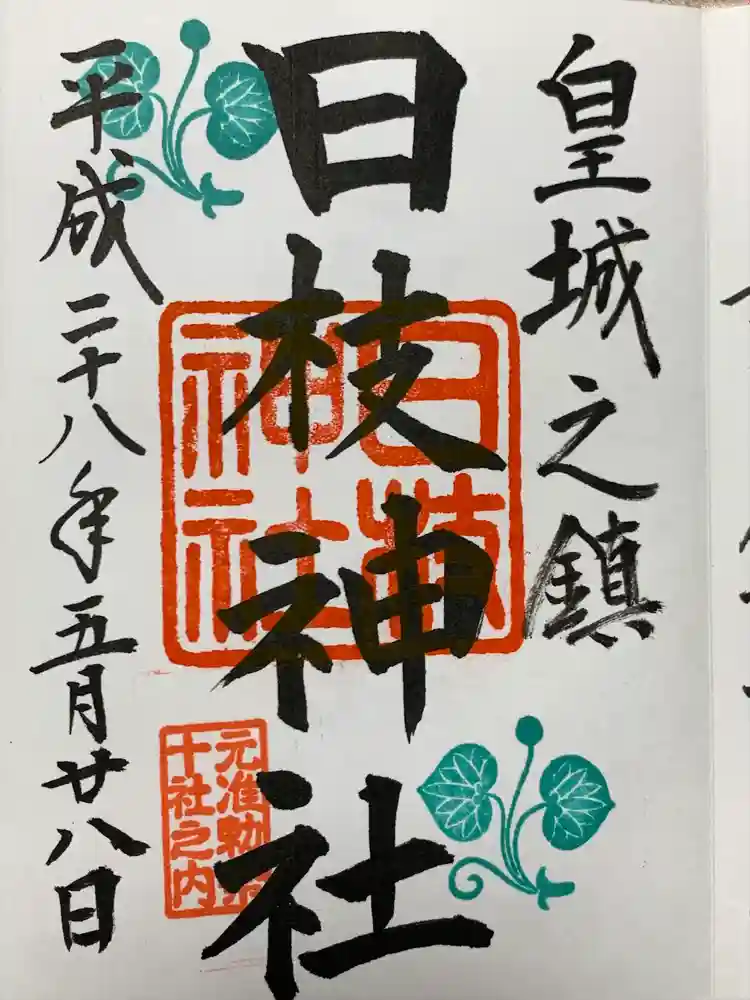 皇城之鎮
日枝神社
日枝
神社
元准勅祭
十社之内
平成二十八年五月廿八日